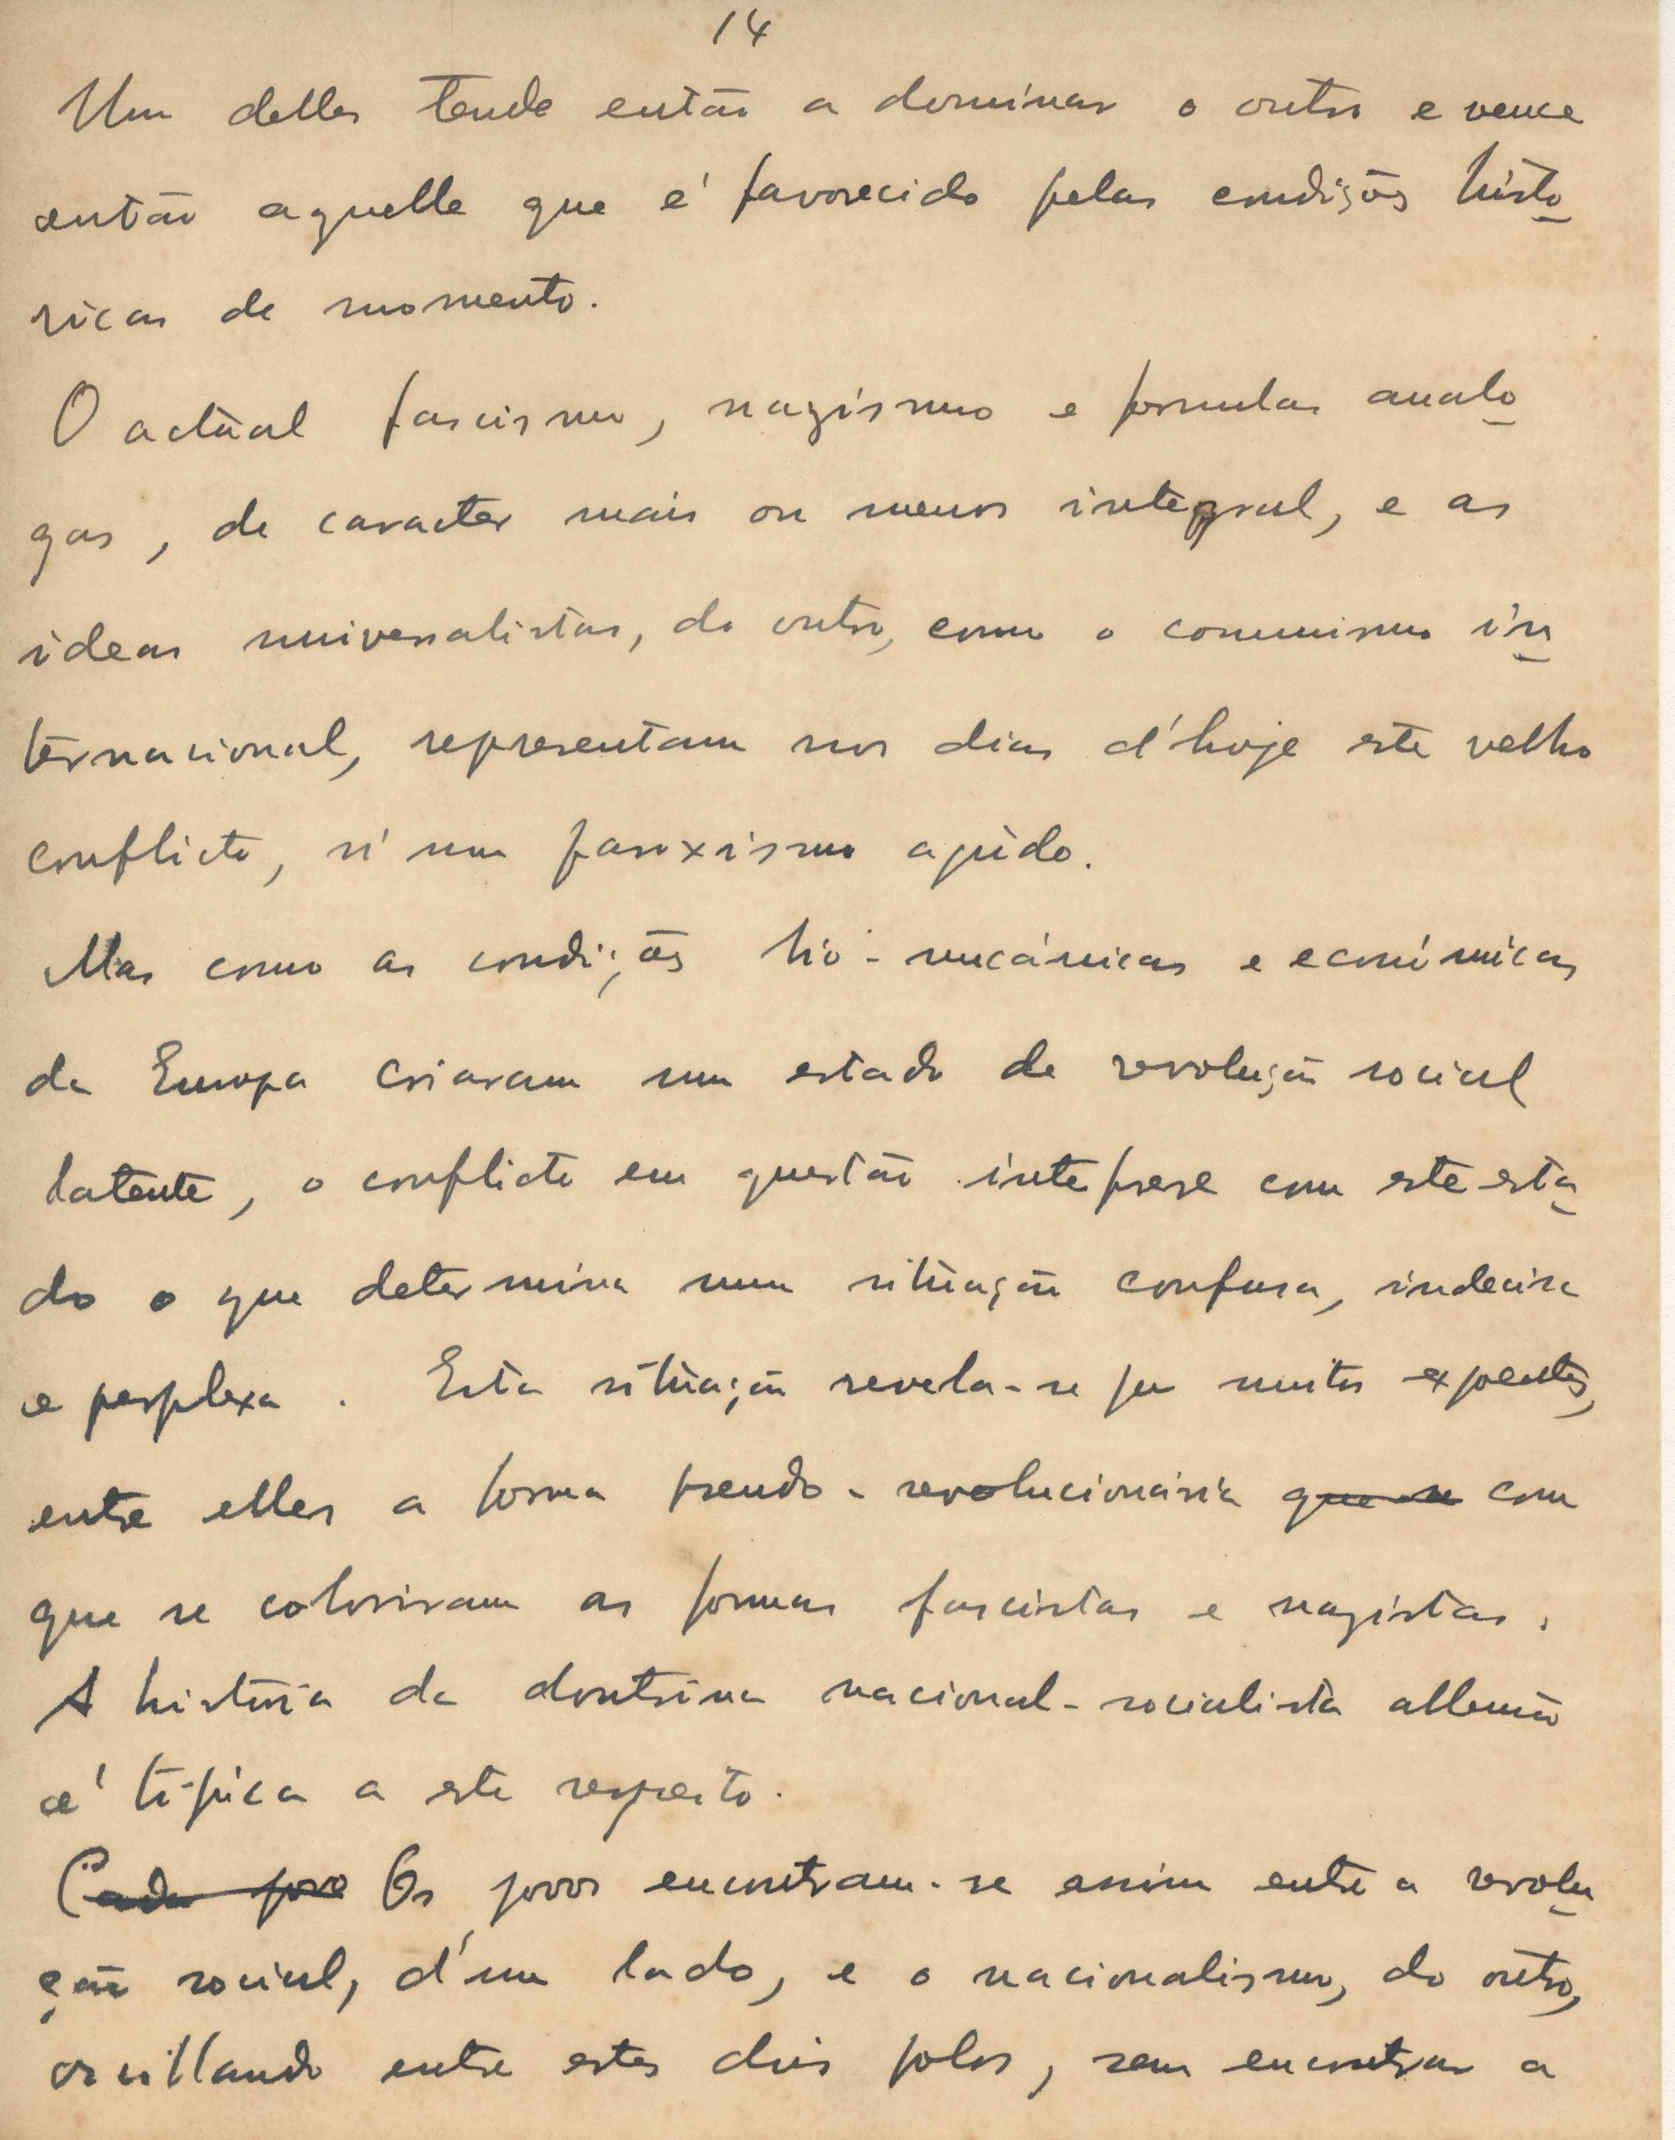 14
Um delles tende então a dominar o outro e vence
então aquelle que é favorecido pelas condições histo
ricas de momento.
O actual fascismo, nazismo e formulas analo
gas, de caracter mais ou menos integral, e as
ideas universalistas, do outro, como o comunismo in
ternacional, representam nos dias d'hoje este velho
conflicto, n'um paroxismo agúdo.
Mas como as condições bio-mecánicas e económicas
da Europa criaram um estado de revolução social
latente, o conflicto em questão interfere com este esta
do o que determina uma situação confusa, indecisa
e perplexa. Esta situação revela-se por muitos expoentes,
entre elles a forma pseudo-revolucionária que se com
que se coloriram as formas fascistas e nazistas.
A história da doutrina nacional-socialista allemã
é típica a este respeito.
Cada povo Os povos encontram-se assim entre a revolu
ção social, d'um lado, e o nacionalismo, do outro,
oscillando entre estes dois polos, sem encontrar a